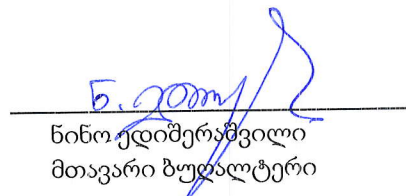 ნინო ედიშერაშვილი
მთავარი ბუღალტერი